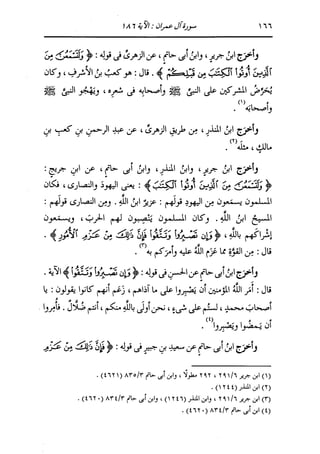 ١٦٦ سورة آل عمران : الآية ١٨٦
وأخرج ابنُ جرير ، وابنُ أبى حاتم ، عن الزهرىِّ فى قوله : ﴿ وَلَتَسْمَعُنَّ مِنَ
الَّذِينَ أُوتُوا الْكِتَبَ مِن قَبْلِكُمْ ﴾ . قال : هو كعبُ بنُ الأشرفِ ، وكان
يُحَرِّضُ المشركين على النبىِّ ﷺ وأصحابِه فى شعرِه ، ويَهْجُو النبىَّ ﷺ
وأصحابَه(١) .
وأخرج ابنُ المنذرِ ، من طريقِ الزهرىِّ ، عن عبدِ الرحمنِ بنِ كعبِ بنِ
مالكٍ ، مثلَه(٢) .
وأخرج ابنُ جريرٍ ، وابنُ المنذرِ ، وابنُ أبى حاتمٍ ، عن ابنِ جريجٍ :
﴿ وَلَتَسْمَعُنَّ مِنَ الَّذِينَ أُوتُوا الْكِتَبَ ﴾ : يعنى اليهودَ والنصارى ، فكان
المسلمون يسمَعون من اليهودِ قولَهم : عزيرٌ ابنُ اللَّهِ . ومن النصارى قولَهم :
المسيحُ ابنُ اللَّهِ . وكان المسلمون يَنْصِبون لهم الحربَ ، ويسمَعون
إشراكَهم باللَّهِ ، ﴿ وَإِن تَصْبِرُوا وَتَتَّقُوا فَإِنَّ ذَلِكَ مِنْ عَزْمِ الْأُمُورِ ﴾ .
قال : مِن القوَّةِ مما عزَم اللَّهُ عليه وأمَركم به(٣) .
وأخرج ابنُ أبى حاتمٍ عن الحسنِ فى قولِه : ﴿ وَإِن تَصْبِرُوا وَتَتَّقُوا ﴾ الآية .
قال : أمَر اللَّهُ المؤمنين أن يَصْبِروا على ما آذاهم ، زعَم أنهم كانوا يقولون : يا
أصحابَ محمدٍ ، لستُم على شىءٍ ، نحن أولَى باللَّهِ منكم ، أنتم ضُلَّالٌ . فأُمِروا
أن يَمْضُوا ويَصْبِروا(٤) .
وأخرج ابنُ أبى حاتمٍ عن سعيدِ بنِ جبيرٍ فى قولِه : ﴿ فَإِنَّ ذَلِكَ مِنْ عَزْمِ
(١) ابن جرير ٢٩١/٦ ، ٢٩٢ مطولًا ، وابن أبى حاتم ٨٣٥/٣ (٤٦٢١) .
(٢) ابن المنذر (١٢٤٤) .
(٣) ابن جرير ٢٩١/٦ ، وابن المنذر (١٢٤٦) ، وابن أبى حاتم ٨٣٤/٣ (٤٦٢٠) .
(٤) ابن أبى حاتم ٨٣٤/٣ (٤٦٢٠) .